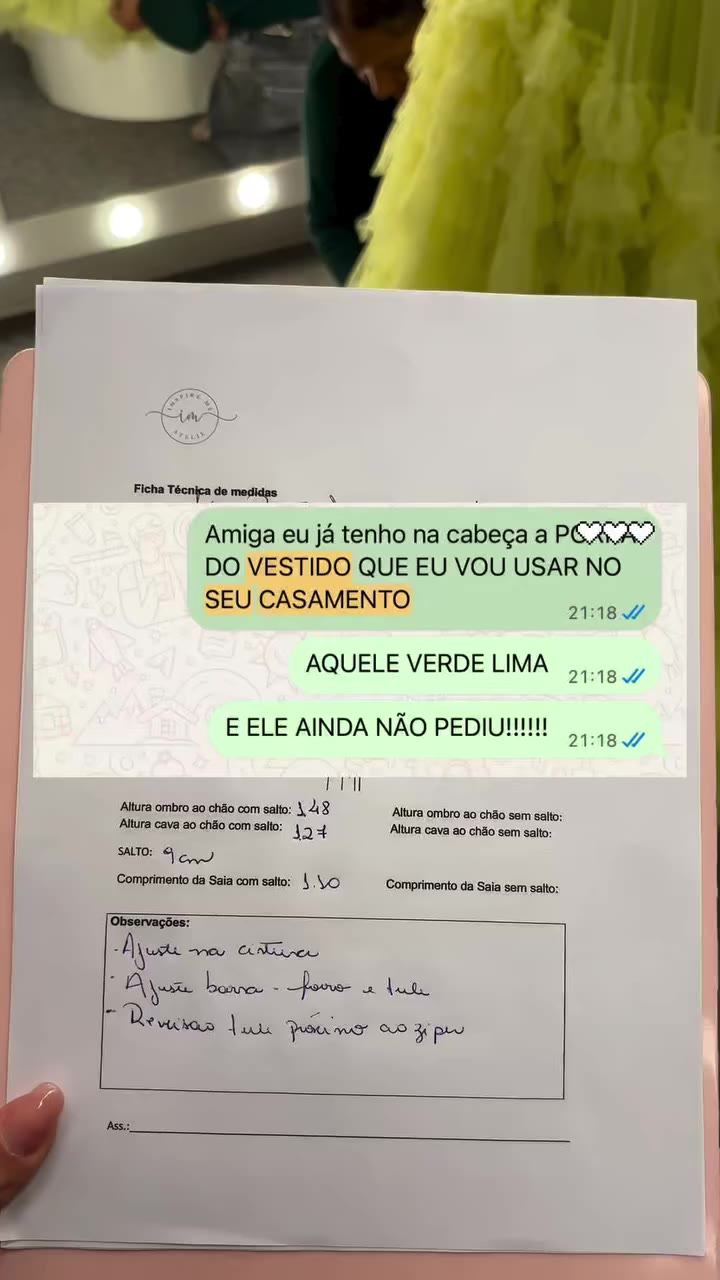 INSPIRE ME
im
ATELIÊ
Ficha Técnica de medidas
Amiga eu já tenho na cabeça a
DO VESTIDO QUE EU VOU USAR NO
SEU CASAMENTO
21:18
AQUELE VERDE LIMA
21:18
E ELE AINDA NÃO PEDIU!!!!!!
21:18
Altura ombro ao chão com salto: 1,48
Altura ombro ao chão sem salto:
Altura cava ao chão com salto: 1,27
Altura cava ao chão sem salto:
SALTO: 9cm
Comprimento da Saia com salto: 1.10
Comprimento da Saia sem salto:
Observações:
- Ajuste na cintura
- Ajuste barra - forro e tule
- Revisão tule próximo ao ziper
Ass.: